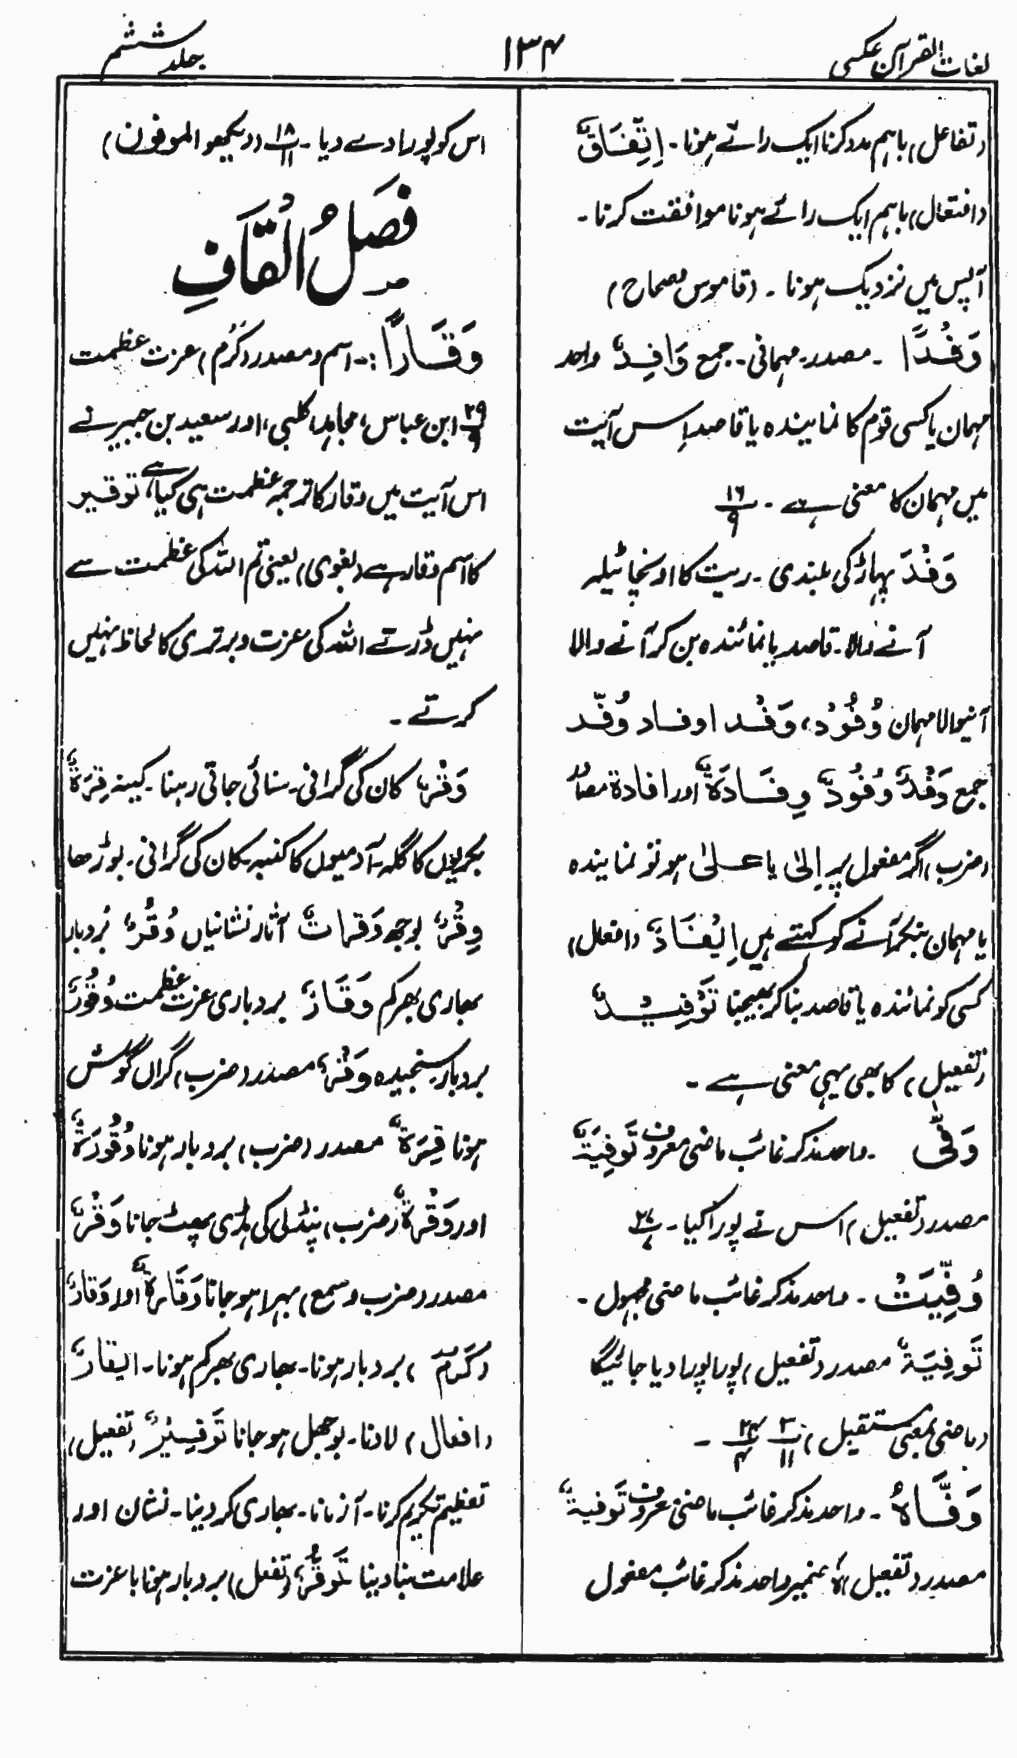 لغات القرآن عکسی
۱۳۴
جلد ششم
(تفاعل) باہم مدد کرنا ایک رائے ہونا۔ اِتِّفَاقٌ
(افتعال) باہم ایک رائے ہونا موافقت کرنا۔
آپس میں نزدیک ہونا ۔ (قاموس صحاح)
وَفْدًا ۔ مصدر۔ مہمانی۔ جمع وَافِدٌ واحد
مہمان یا کسی قوم کا نمایندہ یا قاصد اِس آیت
میں مہمان کا معنی ہے ۔ ۱۶/۹
وَفْدٌ پہاڑ کی بلندی ۔ ریت کا اونچا ٹیلہ
آنے والا ۔ قاصد یا نمائندہ بن کر آنے والا
آنیوالا مہمان وُفُوْد، وَفْد اوفاد وُفَّد
جمع وَفْدٌ وُفُوْدٌ وِفَادَةٌ اور افادة مصادر
(ضرب) اگر مفعول پر اِلیٰ یا عَلیٰ ہو تو نمایندہ
یا مہمان بنکر آنے کو کہتے ہیں اِیْفَادٌ (افعال)
کسی کو نمائندہ یا قاصد بنا کر بھیجنا تَوْفِیْدٌ
(تفعیل) کا بھی یہی معنی ہے ۔
وَفّٰی ۔ واحد مذکر غائب ماضی معروف تَوفِیَةٌ
مصدر (تفعیل) اس نے پورا کیا ۔ ۲۷/۷
وُفِّیَتْ ۔ واحد مذکر غائب ماضی مجہول ۔
تَوفِیَةٌ مصدر (تفعیل) پورا پورا دیا جائیگا
(ماضی بمعنی مستقبل) ۳/۱۱ ۲۴/۴ ۔
وَفَّاہُ ۔ واحد مذکر غائب ماضی معروف تَوفیةٌ
مصدر (تفعیل) ہٗ ضمیر واحد مذکر غائب مفعول
اس کو پورا دے دیا ۔ ۱۸/۱۱ (دیکھو الموفون)
فَصْلُ الْقَافِ
وَقَارًا :۔ اسم و مصدر (کَرُمَ) عزت عظمت
۲۹/۹ ابن عباس، مجاہد، کلبی، اور سعید بن جبیر نے
اس آیت میں وقار کا ترجمہ عظمت ہی کیا ہے، توقیر
کا اسم وقار ہے (بغوی) یعنی تم اللہ کی عظمت سے
نہیں ڈرتے اللہ کی عزت و برتری کا لحاظ نہیں
کرتے ۔
وَقْرٌ کان کی گرانی۔ سنائی جاتی رہنا ۔ کینہ قِرَةٌ
بکریوں کا گلہ۔ آدمیوں کا کنبہ۔ کان کی گرانی۔ بوڑھا
وِقْرٌ بوجھ وَقَراتٌ آثار نشانیاں وُقُرٌ بُردبار
بھاری بھرکم وَقَارٌ بردباری عزت عظمت وُقُوْرٌ
بردبار سنجیدہ وَقْرٌ مصدر (ضرب) گراں گوش
ہونا قِرَةٌ مصدر (ضرب) بردبار ہونا وُقُورَةٌ
اور وَقْرَةٌ (ضرب) پنڈلی کی ہڈی پھٹ جانا وَقْرٌ
مصدر (ضرب و سمع) بہرا ہو جانا وَقَارةٌ اور وَقارٌ
(کَرُمَ) بردبار ہونا۔ بھاری بھرکم ہونا۔ ایقارٌ
(افعال) لادنا۔ بوجھل ہو جانا تَوقِیْرٌ (تفعیل)
تعظیم تکریم کرنا ۔ آزمانا۔ بھاری کر دینا۔ نشان اور
علامت بنا دینا تَوَقُّرٌ (تفعل) بردبار ہونا با عزت